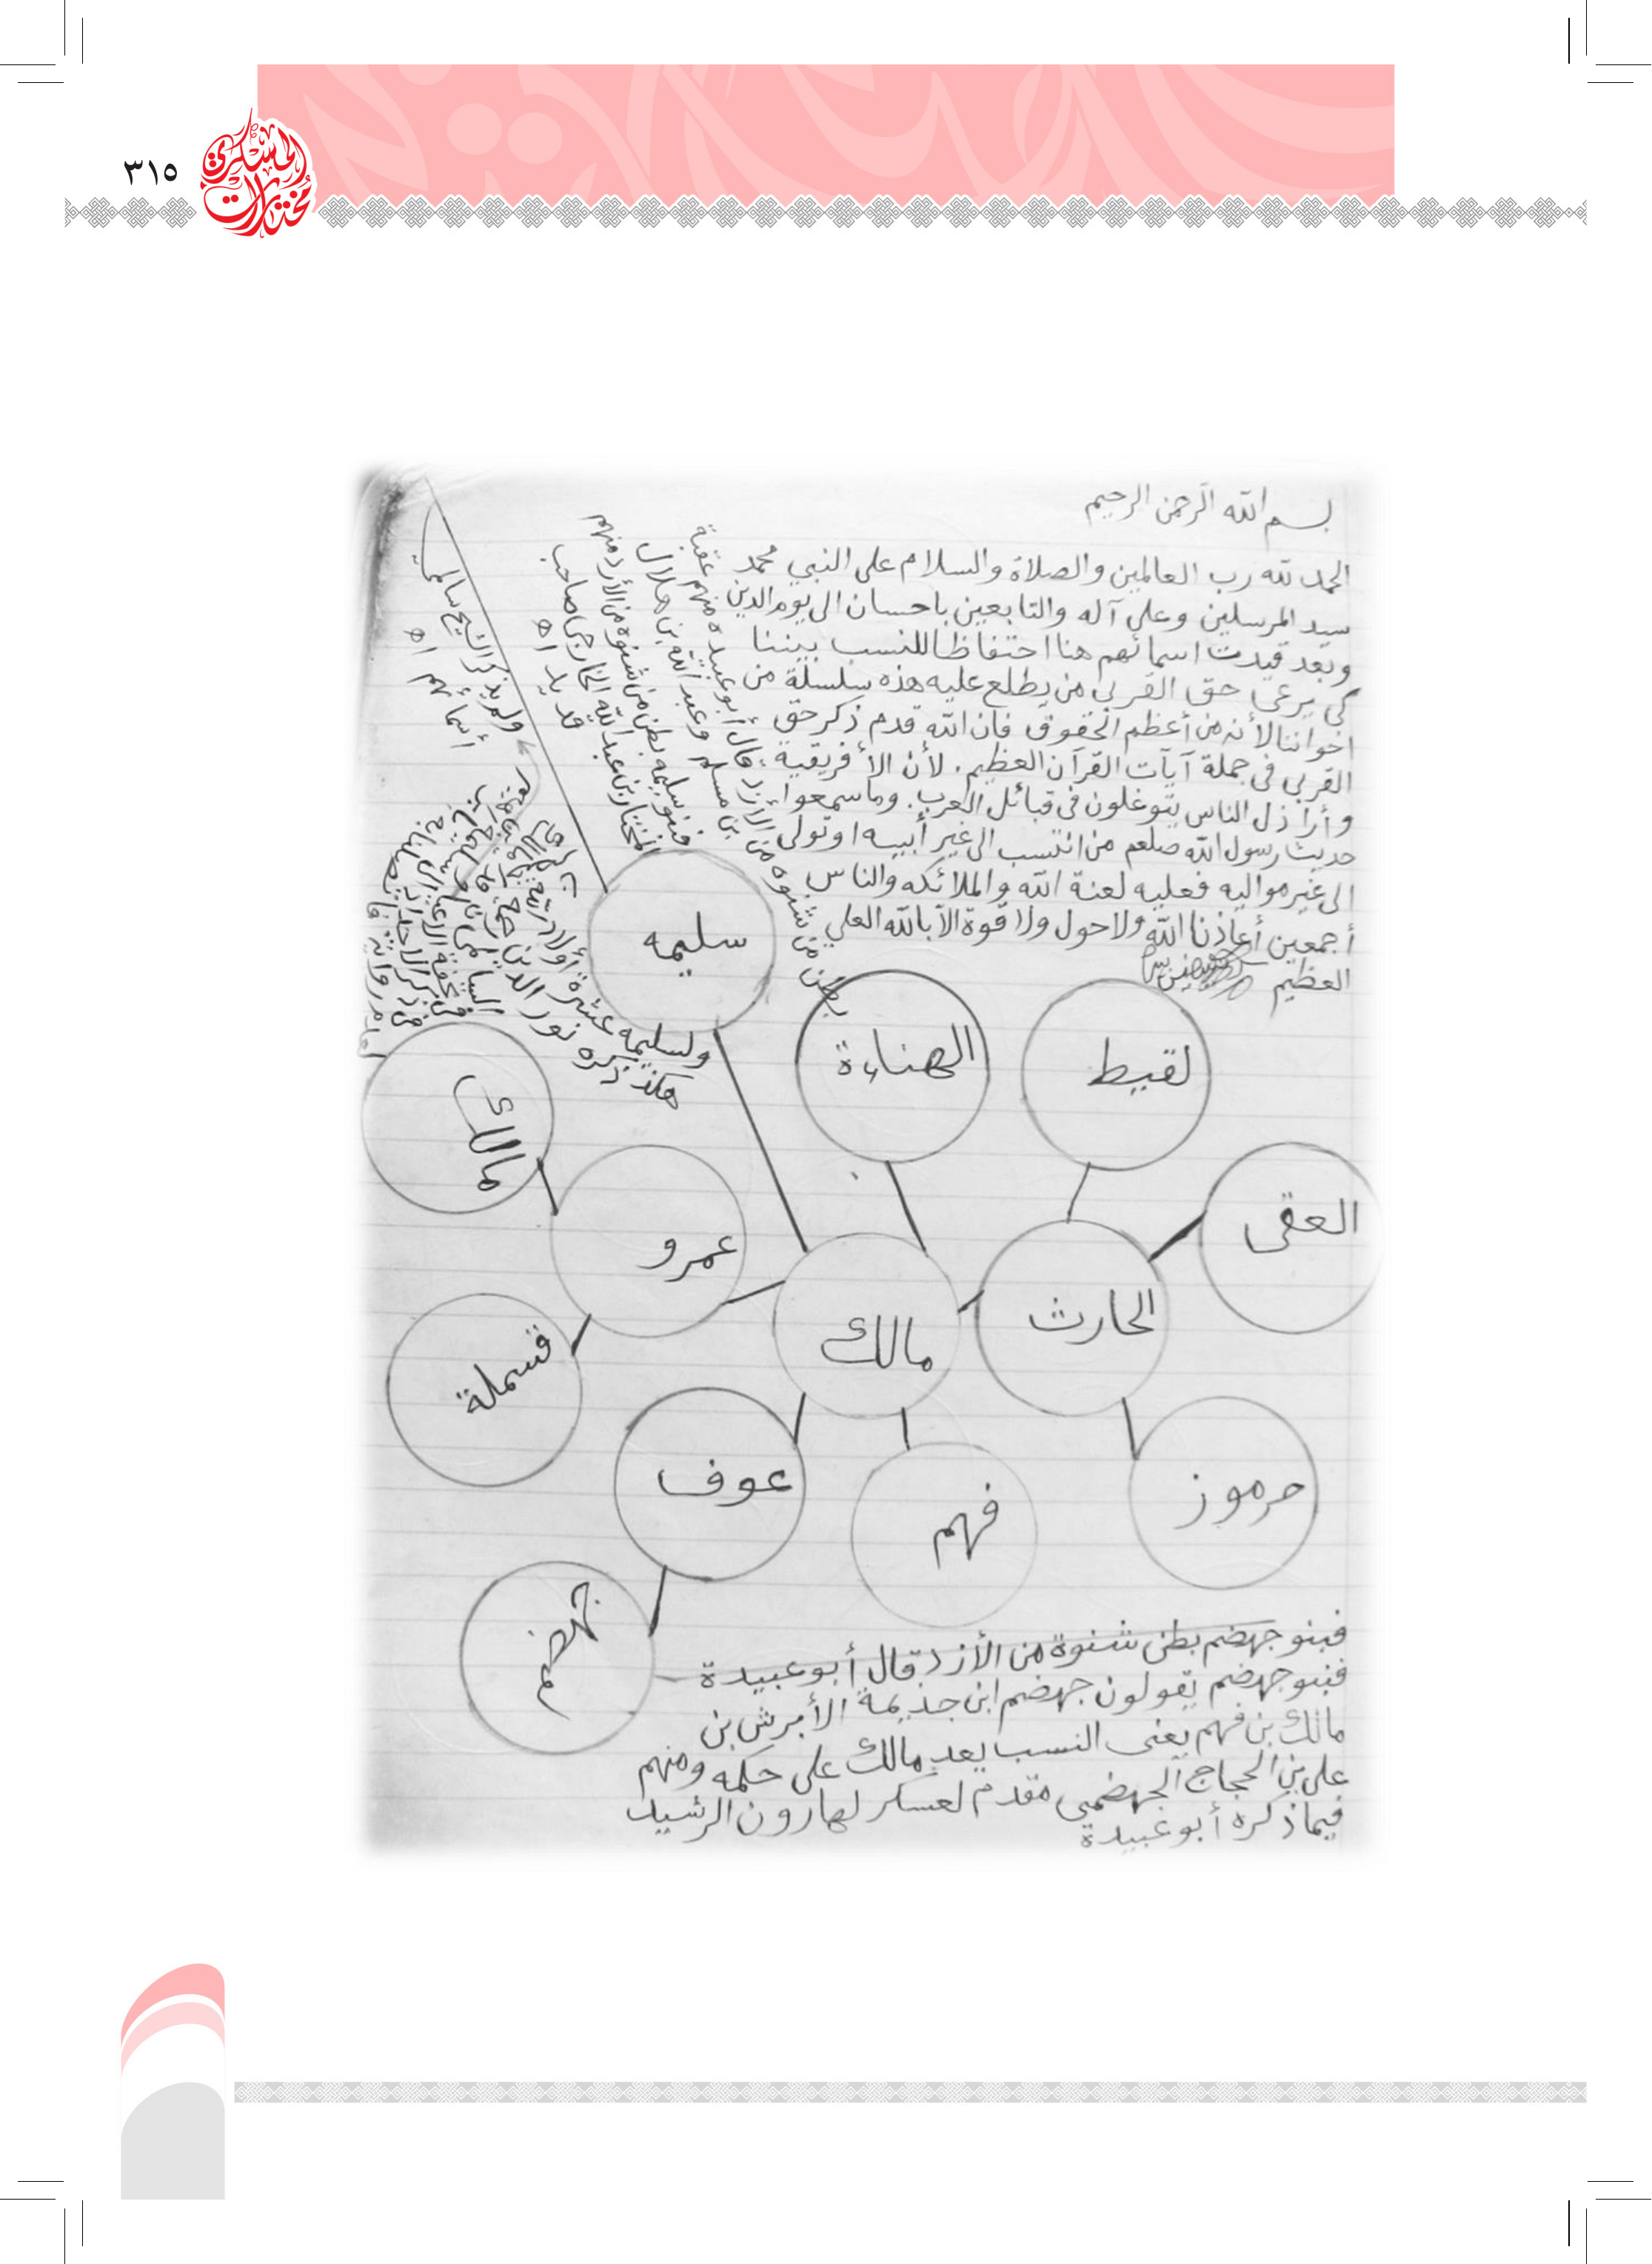 ٣١٥
مختارات العسكري
بسم الله الرحمن الرحيم
الحمد لله رب العالمين والصلاة والسلام على النبي محمد
سيد المرسلين وعلى آله والتابعين باحسان الى يوم الدين
وبعد قيدت اسمائهم هنا احتفاظا للنسب بيننا
كي يرعى حق القربى من يطلع عليه هذه سلسلة من
اخواننا لأنه من أعظم الحقوق فان الله قدم ذكر حق
القربى في جملة آيات القرآن العظيم. لأن الأفريقية
وأراذل الناس يتوغلون في قبائل العرب. وما سمعوا
حديث رسول الله صلعم من انتسب الى غير أبيه او تولى
الى غير مواليه فعليه لعنة الله والملائكه والناس
أجمعين أعاذنا الله ولا حول ولا قوة الا بالله العلي
العظيم
بطن من شنوه من الأزد قال أبو عبيده منهم عقبة
بن مسلم وعبد الله بن هلال
فبنو سليمه بطن من شنوة من الأزد منهم
المختار بن عبد الله الخارجي صاحب
قديد اه
ولم يذكر الشيخ سالمي
أسمائهم اه
ولسليمه عشرة أولاد
هكذا ذكره نور الدين
سليمه
الهناءة
لقيط
مالك
العقى
عمرو
الحارث
مالك
قسملة
عوف
فهم
حرموز
جهضم
فبنو جهضم بطن شنوة من الأزد قال أبو عبيدة
فبنو جهضم يقولون جهضم ابن جذيمة الأبرش بن
مالك بن فهم يعنى النسب يعد مالك على حكمه ومنهم
على بن الحجاج الجهضمي مقدم لعسكر لهارون الرشيد
فيما ذكره أبو عبيدة